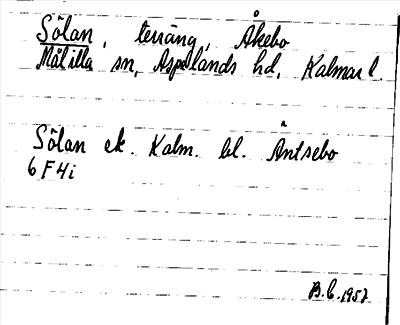 Sölan, terräng, Åkebo
Målilla sn, Aspelands hd, Kalmar l.
Sölan ek. Kalm. bl. Äntsebo
6 F 4i
B.C. 1957